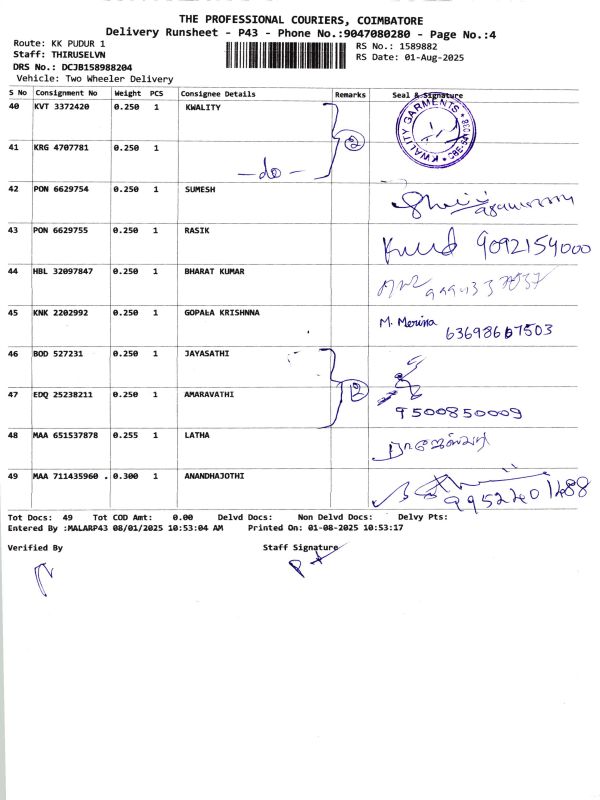 THE PROFESSIONAL COURIERS, COIMBATORE
Delivery Runsheet - P43 - Phone No.:9047080280 - Page No.:4
Route: KK PUDUR 1
RS No.: 1589882
Staff: THIRUSELVN
RS Date: 01-Aug-2025
DRS No.: DCJB158988204
Vehicle: Two Wheeler Delivery
S No Consignment No Weight PCS Consignee Details Remarks Seal & Signature
40 KVT 3372420 0.250 1 KWALITY
KWALITY GARMENTS
2
41 KRG 4707781 0.250 1
-do-
42 PON 6629754 0.250 1 SUMESH
43 PON 6629755 0.250 1 RASIK
9092154000
44 HBL 32097847 0.250 1 BHARAT KUMAR
45 KNK 2202992 0.250 1 GOPALA KRISHNNA
M. Merina
63698667503
46 BOD 527231 0.250 1 JAYASATHI
2
47 EDQ 25238211 0.250 1 AMARAVATHI
9500850009
48 MAA 651537878 0.255 1 LATHA
49 MAA 711435960 . 0.300 1 ANANDHAJOTHI
9952401488
Tot Docs: 49 Tot COD Amt: 0.00 Delvd Docs: Non Delvd Docs: Delvy Pts:
Entered By :MALARP43 08/01/2025 10:53:04 AM Printed On: 01-08-2025 10:53:17
Verified By Staff Signature